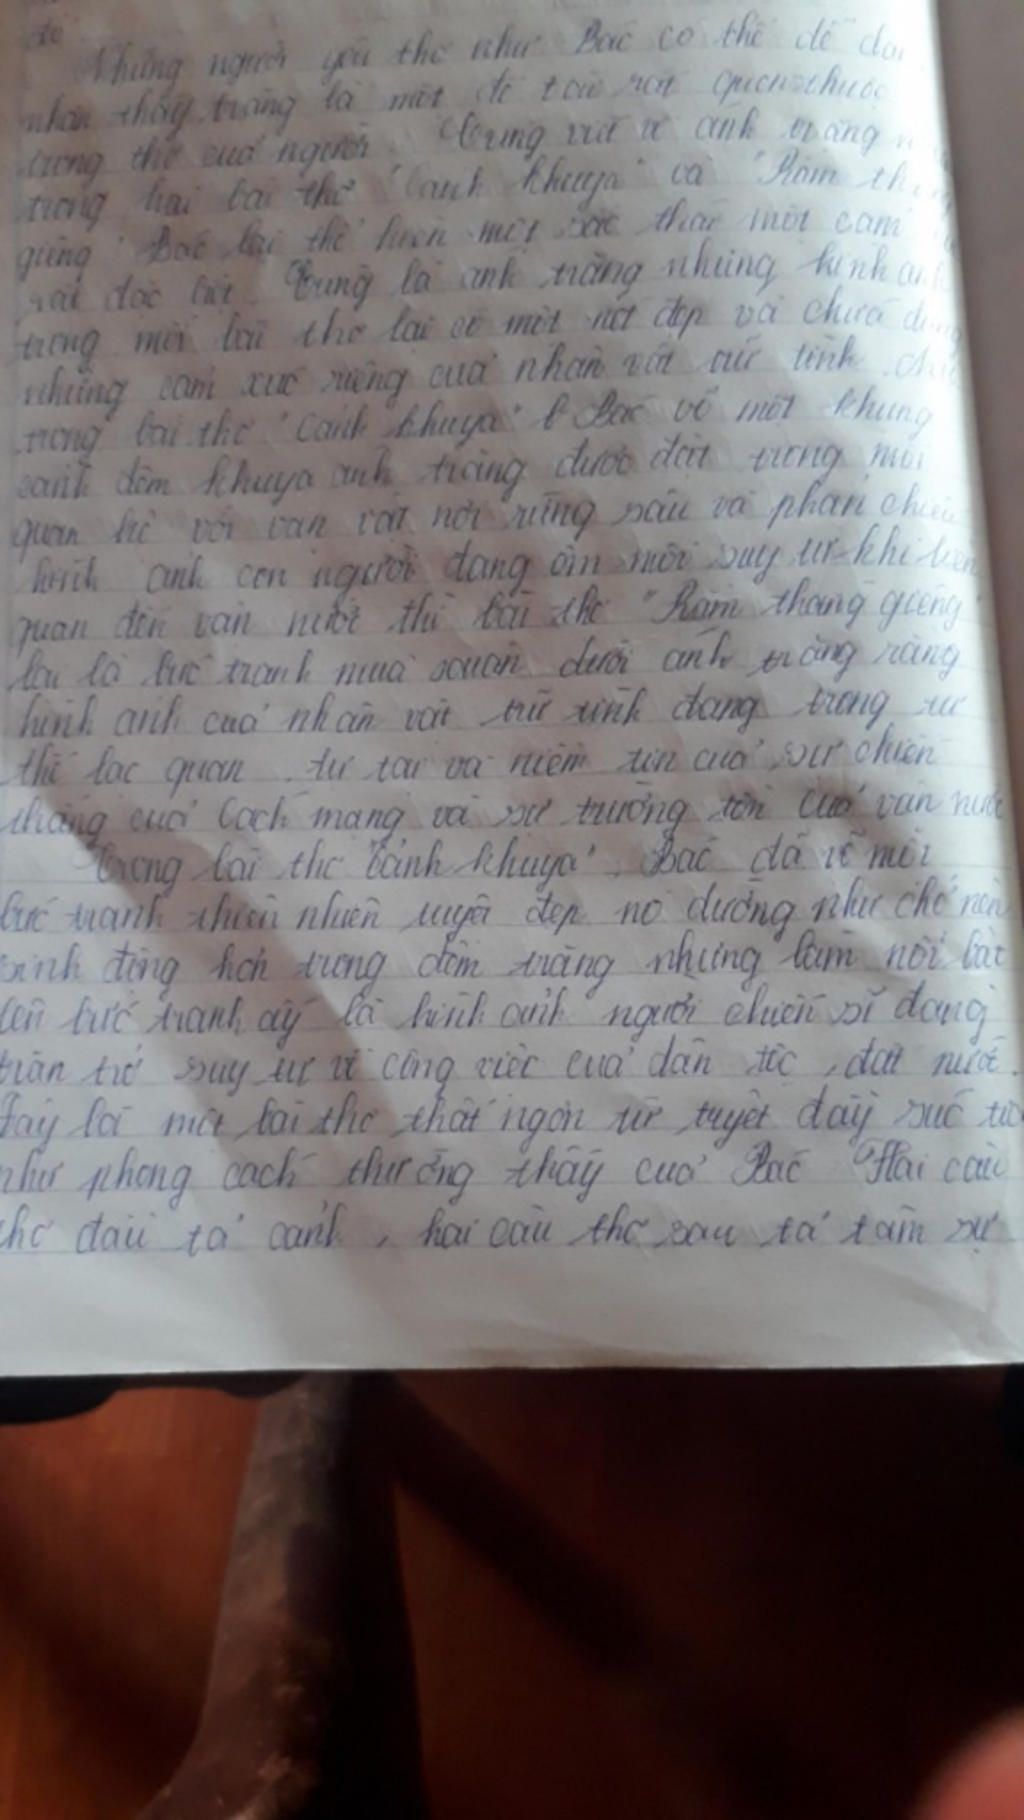 Những người yêu thơ như Bác có thể dễ dàn
nhận thấy trăng là một đề tài rất quen thuộc
trong thơ của người. Cùng viết về ánh trăng
trong hai bài thơ "Cảnh khuya" và "Rằm thán
giêng" Bác lại thể hiện một sắc thái một cảm
rất đặc biệt. Cùng là ánh trăng nhưng hình ản
trong mỗi bài thơ lại có một nét đẹp và chứa đựng
những cảm xúc riêng của nhân vật trữ tình.
trong bài thơ "Cảnh khuya" Bác vẽ một khung
cảnh đêm khuya ánh trăng được đặt trong mối
quan hệ với vạn vật nơi rừng sâu và phản chiếu
hình ảnh con người đang ôm mối suy tư khi liên
quan đến vận nước thì bài thơ "Rằm tháng giêng"
lại là bức tranh mùa xuân dưới ánh trăng rằng
hình ảnh của nhân vật trữ tình đang trong tư
thế lạc quan, tự tại và niềm tin của sự chiến
thắng của Cách mạng và sự trường tồn của vận nước
Trong bài thơ "Cảnh khuya", Bác đã vẽ một
bức tranh thiên nhiên tuyệt đẹp nó dường như chở nên
sinh động hơn trong đêm trăng nhưng làm nổi bật
lên bức tranh ấy là hình ảnh người chiến sĩ đang
trăn trở suy tư về công việc của dân tộc, đất nước.
Đây là một bài thơ thất ngôn tứ tuyệt đầy súc tích
như phong cách thường thấy của Bác Hai câu
thơ đầu tả cảnh, hai câu thơ sau tả tâm sự